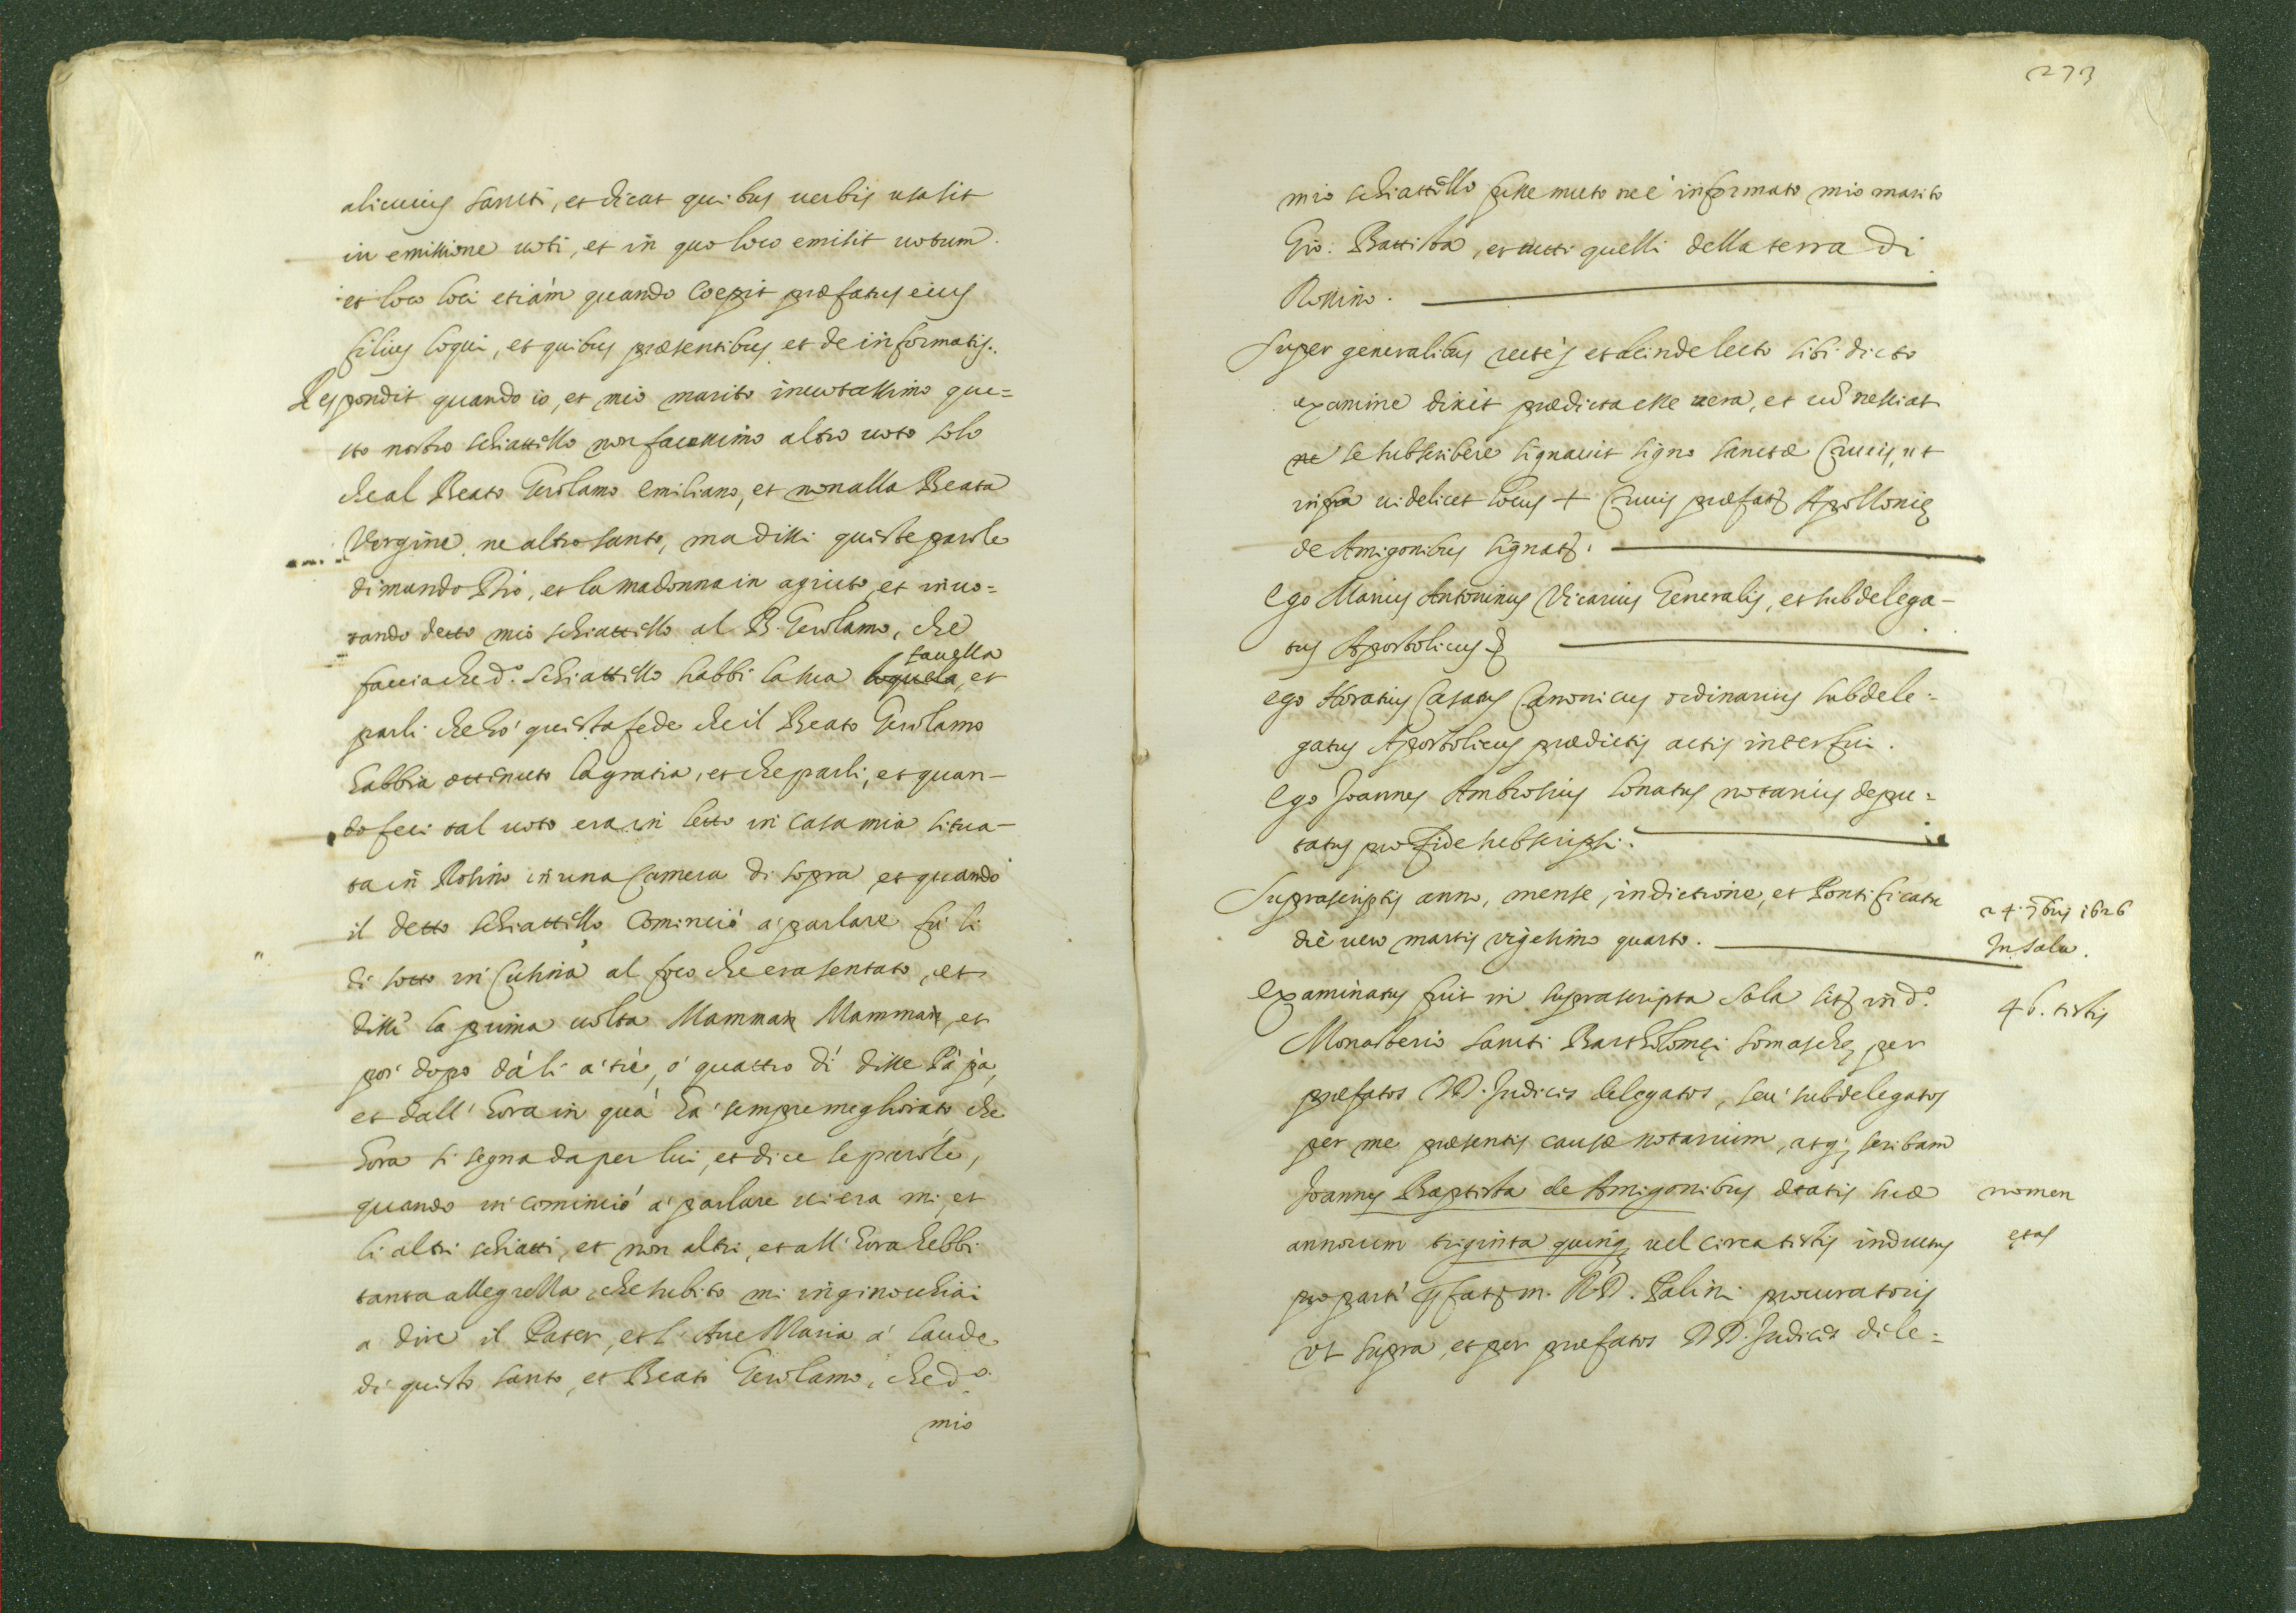 alicuius sancti, et dicat quibus uerbis usa sit
in emissione uoti, et in quo loco emisit uotum.
et loco loci etiam quando coepit præfatus eius
filius loqui, et quibus præsentibus et de informatis.
Respondit quando io, et mio marito inuotassimo que=
sto nostro schiattello non facessimo altro uoto solo
che al Beato Gerolamo Emiliano, et non alla Beata
Vergine, ne altro santo, ma dissi queste parole
dimando Dio, et la madonna in agiuto, et inuo=
tando detto mio schiattello al B. Gerolamo, che
faccia che d.º schiattello habbi la sua loquela, et
fauella
parli che hó questa fede che il Beato Gerolamo
habbia ottenuto la gratia, et che parli, et quan-
do feci tal uoto era in letto in casa mia situa-
ta in Rosino in una Camera di sopra et quando
il detto schiattello cominciò a parlare fù li
di sotto in Cusina al foco che era sentato, et
disse la prima uolta Mamman Mamman, et
poi dopo dà li a trè, ó quattro dì disse Pà pà,
et dall' hora in quà hà sempre meghorato che
hora si segna da per lui, et dice le parole,
quando in cominciò a parlare ui era mi, et
li altri schiatti, et non altri, et all' hora hebbi
tanta allegrezza, che subito mi inginochiai
a dire il Pater, et l' Aue Maria a laude
di questo santo, et Beato Gerolamo, che d.º
mio
273
mio schiattello fosse muto ne é informato mio marito
Gio: Battista, et tutti quelli della terra di
Rossino.
Super generalibus recté, et deinde lecto sibi dicto
examine dixit prædicta esse uera, et cū nessiat
ne se subscribere signauit signo sanctæ Crucis, ut
infra uidelicet locus + Crucis præfatę Apollonię
de Amigonibus signatę.
Ego Marius Antoninus Vicarius Generalis, et subdelega-
tus Apostolicus
Ego Horatius Casatus Canonicus ordinarius subdele=
gatus Apostolicus prædictis actis interfui.
Ego Joannes Ambrosius Lonatus notarius depu=
tatus pro fide subscripsi.
Suprascriptis anno, mense, indictione, et Pontificatu
die uero martis vigesimo quarto.
24. 9bris 1626
In sala.
Examinatus fuit in suprascripta sala sitę in d.º
46. testis
Monasterio sancti Bartholomęi somaschę per
præfatos DD. Judices delegatos, seù subdelegatos
per me præsentis causæ notarium, atq; scribam
Joannes Baptista de Amigonibus ætatis suæ
nomen
annorum triginta quinq; uel circa testis inductus
ętas
pro parte pfati m. R.D. Palini procuratoris
vt supra, et per præfatos DD. Judices dele=